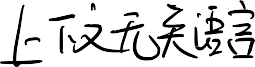 上下文无关语言